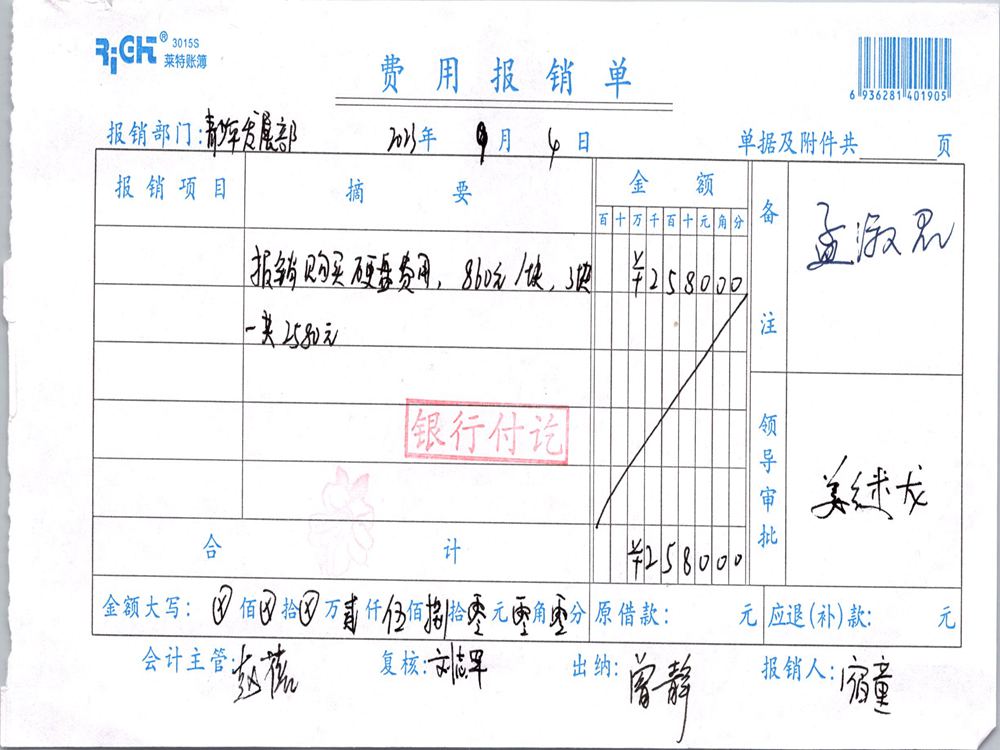 RiGHT® 3015S
莱特账簿
费用报销单
6 936281 401905
报销部门：青少年发展部 2023年 9月 4日 单据及附件共 页
报销项目 摘要 金额 备注
百十万千百十元角分
孟淑君
报销购买硬盘费用，860元/块，3块 ¥258000
一共2580元
银行付讫
领导审批
姜继龙
合计 ¥258000
金额大写：ⓧ佰ⓧ拾ⓧ万贰仟伍佰捌拾零元零角零分 原借款： 元 应退(补)款： 元
会计主管：赵蓓 复核：刘志军 出纳：曾静 报销人：宿童